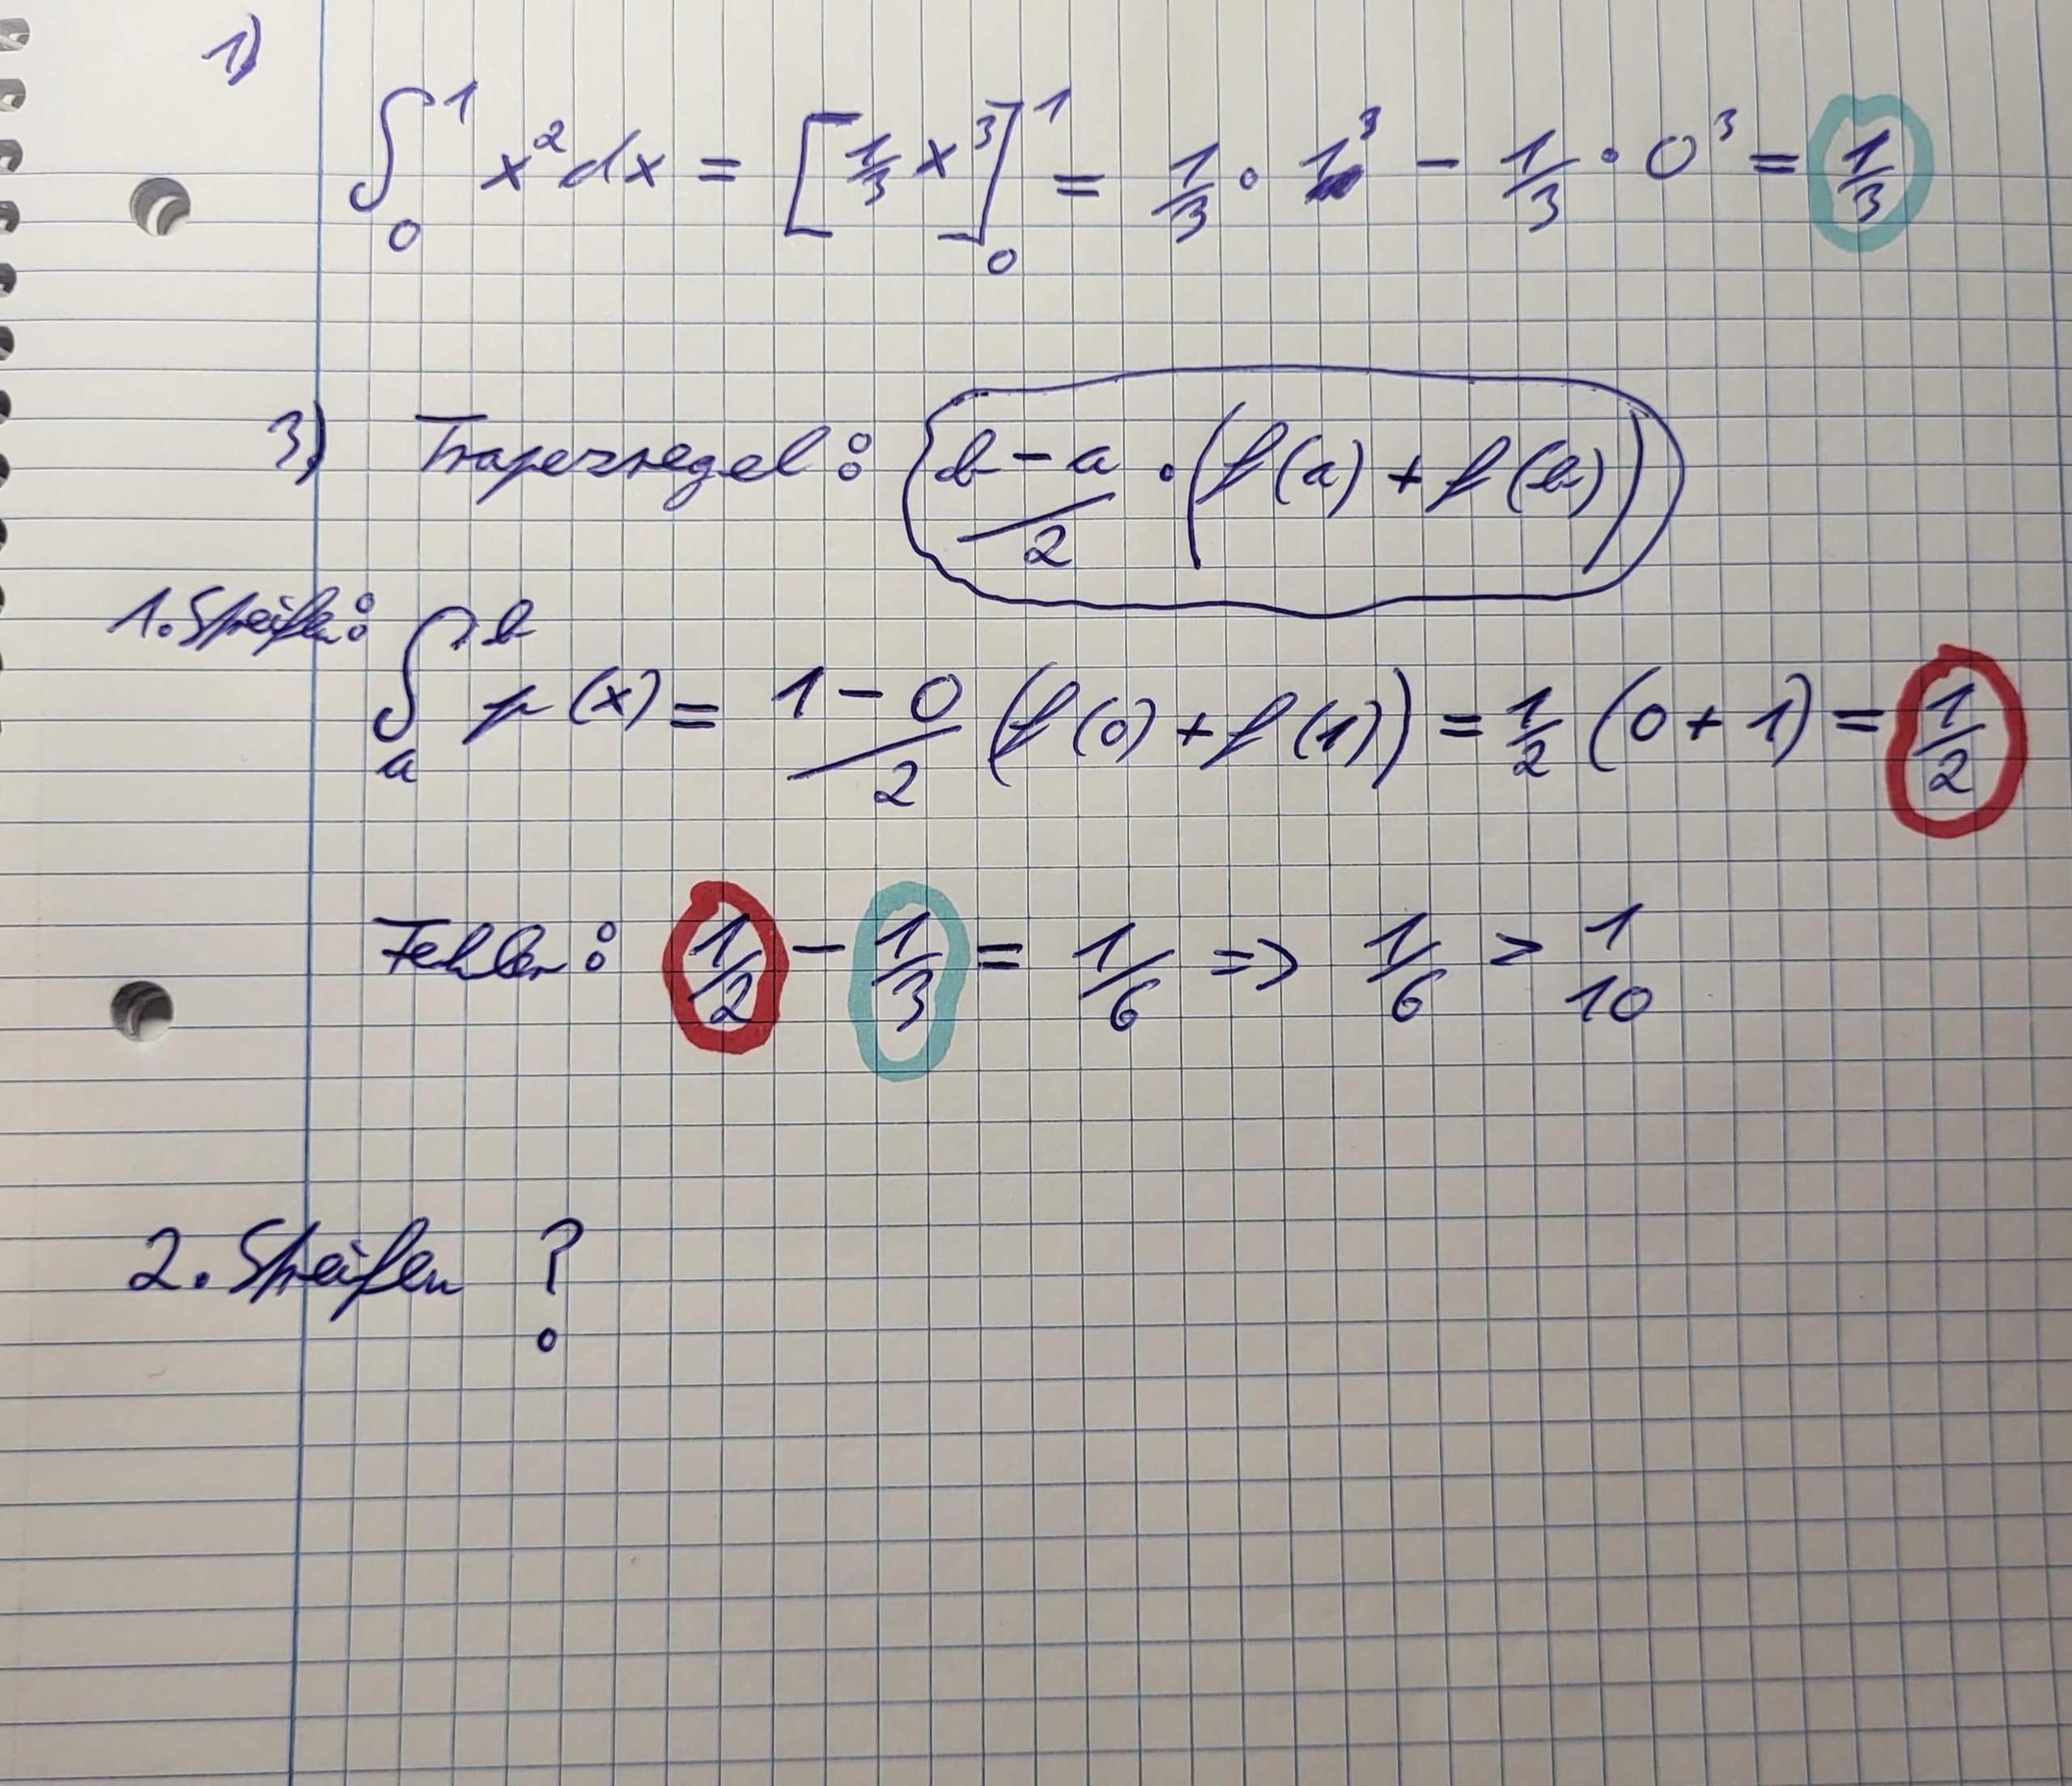 1)
∫₀¹ x² dx = [1/3 x³]₀¹ = 1/3 · 1³ - 1/3 · 0³ = 1/3
3) Trapezregel: b-a/2 · (f(a) + f(b))
1. Streifen: ∫ₐᵇ p(x) = 1-0/2 (f(0) + f(1)) = 1/2 (0+1) = 1/2
Fehler: 1/2 - 1/3 = 1/6 => 1/6 > 1/10
2. Streifen ?